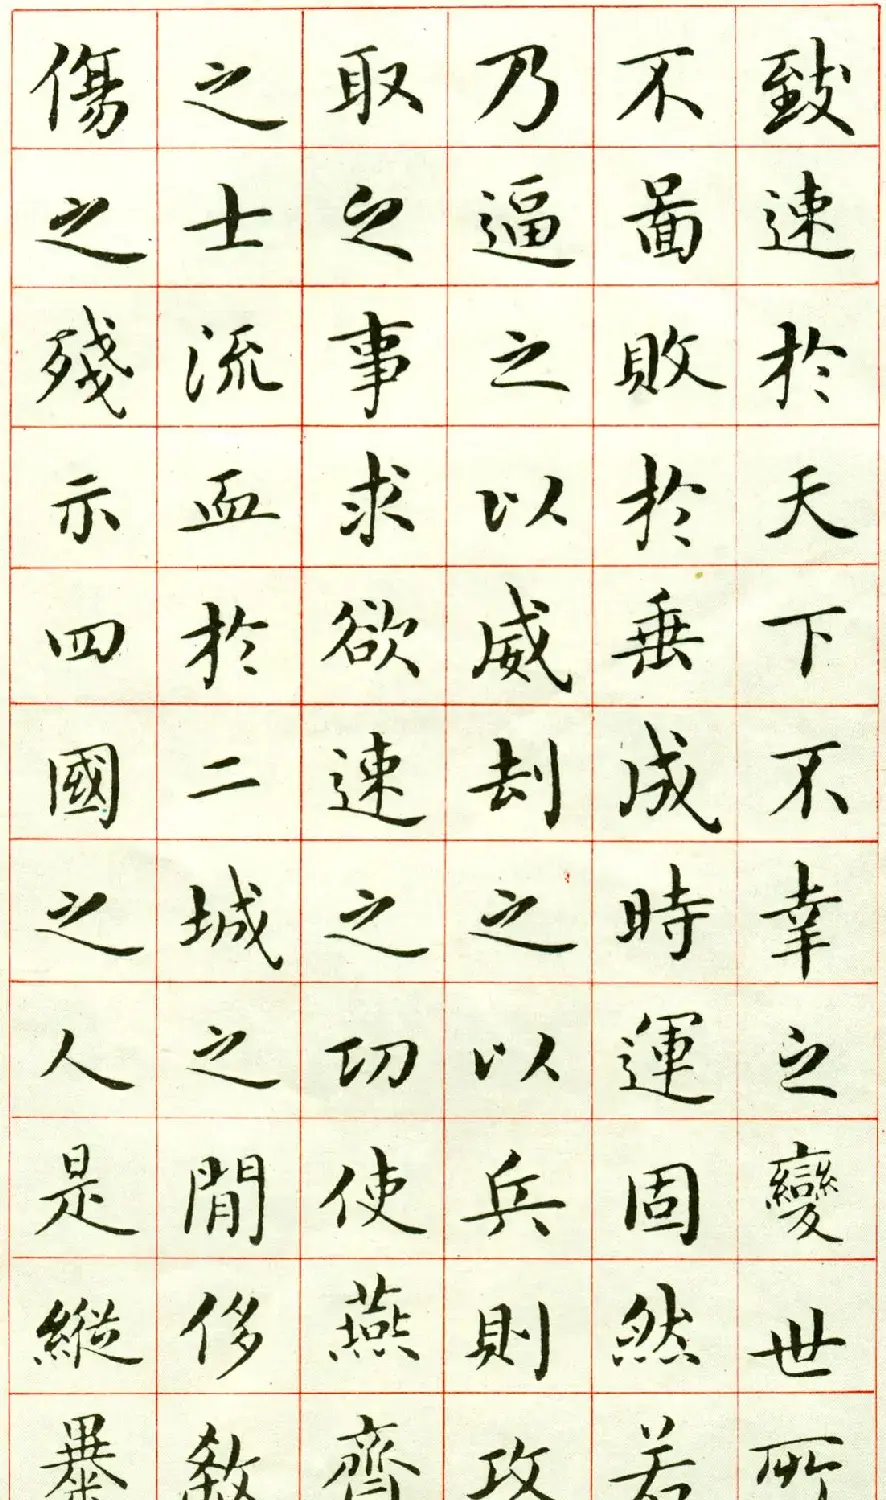 致速於天下不幸之變世所
不啚敗於垂成時運固然若
乃逼之以威劫之以兵則攻
取之事求欲速之功使燕齊
之士流血於二城之閒侈敎
傷之殘示四國之人是縱暴